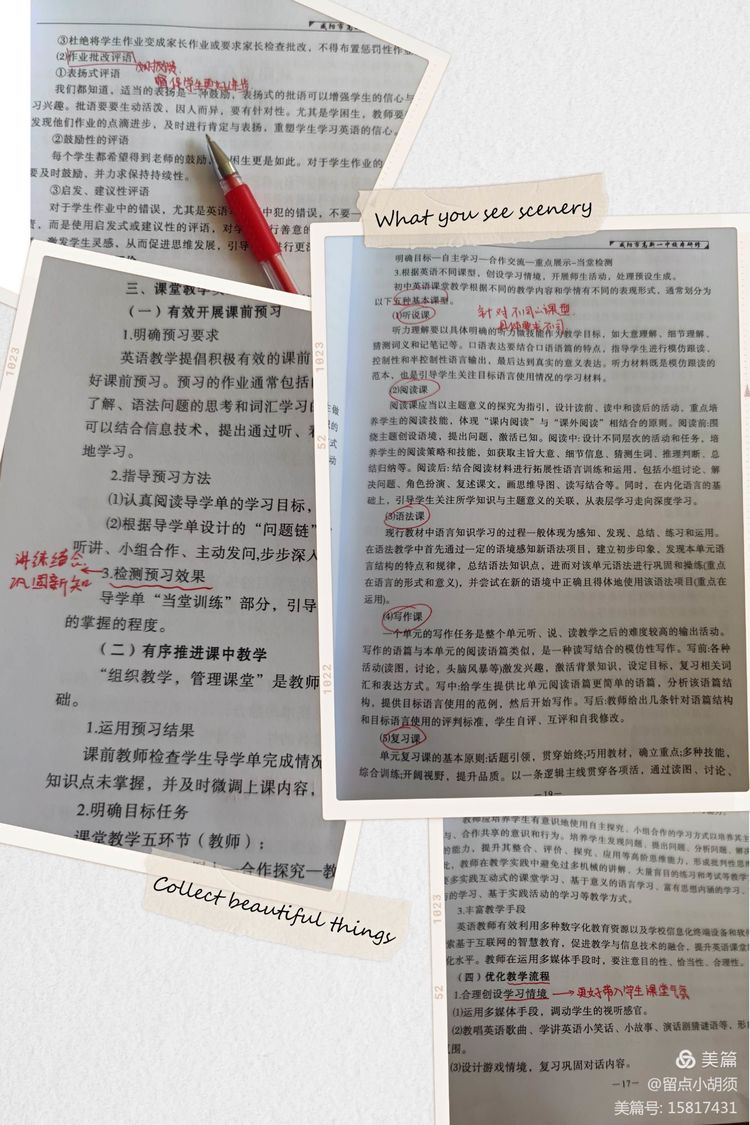 咸阳市高
③杜绝将学生作业变成家长作业或要求家长检查批改，不得布置惩罚性作业
⑵作业批改评语
①表扬式评语
我们都知道，适当的表扬是一种鼓励，表扬式的批语可以增强学生的信心与
习兴趣。批语要要生动活泼，因人而异，要有针对性。尤其是学困生，教师要
发现他们作业的点滴进步，及时进行肯定与表扬，重塑学生学习英语的信心。
②鼓励性的评语
每个学生都希望得到老师的鼓励，学困生更是如此。对于学生作业的
要及时鼓励，并力求保持持续性。
③启发、建议性评语
对于学生作业中的错误，尤其是英语 中犯的错误，不要一
责，而是使用启发式或建议性的评语，对学 行善意的
激发学生灵感，从而促进思维发展，引导 进行更深
What you see scenery
三、课堂教学
（一）有效开展课前预习
1.明确预习要求
英语教学提倡积极有效的课前
好课前预习。预习的作业通常包括
了解、语法问题的思考和词汇学习的
可以结合信息技术，提出通过听、看
地学习。
2.指导预习方法
⑴认真阅读导学单的学习目标，
⑵根据导学单设计的“问题链”
听讲、小组合作、主动发问,步步深入
讲练结合
巩固新知
3.检测预习效果
导学单“当堂训练”部分，引导
的掌握的程度。
（二）有序推进课中教学
“组织教学，管理课堂”是教师
础。
1.运用预习结果
课前教师检查学生导学单完成情况
知识点未掌握，并及时微调上课内容，
2.明确目标任务
课堂教学五环节（教师）：
合作探究—教
咸阳市高新一中校本研修
明确目标—自主学习—合作交流—重点展示—当堂检测
3.根据英语不同课型，创设学习情境，开展师生活动，处理预设生成。
初中英语课堂教学根据不同的教学内容和学情有不同的表现形式，通常划分为
以下五种基本课型。
针对不同课型
具体要求不同
⑴听说课
听力理解要以具体明确的听力微技能作为教学目标，如大意理解，细节理解、
猜测词义和记笔记等。口语表达要结合口语语篇的特点，指导学生进行模仿跟读、
控制性和半控制性语言输出，最后达到真实的意义表达。听力材料既是模仿跟读的
范本，也是引导学生关注目标语言使用情况的学习材料。
⑵阅读课
阅读课应当以主题意义的探究为指引，设计读前、读中和读后的活动，重点培
养学生的阅读技能，体现“课内阅读”与“课外阅读”相结合的原则。阅读前:围
绕主题创设语境，提出问题，激活已知。阅读中:设计不同层次的活动和任务，培
养学生的阅读策略和技能，如获取主旨大意、细节信息、猜测生词、推理判断、总
结归纳等。阅读后:结合阅读材料进行拓展性语言训练和运用，包括小组讨论、解
决问题、角色扮演、复述课文，画思维导图、读写结合等。同时，在内化语言的基
础上，引导学生关注所学知识与主题意义的关联，从表层学习走向深度学习。
⑶语法课
现行教材中语言知识学习的过程一般体现为感知、发现、总结、练习和运用。
在语法教学中首先通过一定的语境感知新语法项目，建立初步印象，发现本单元语
言结构的特点和规律，总结语法知识点，进而对该单元语法进行巩固和操练(重点
在语言的形式和意义)，并尝试在新的语境中正确且得体地使用该语法项目(重点在
运用)。
⑷写作课
一个单元的写作任务是整个单元听、说、读教学之后的难度较高的输出活动。
写作的语篇与本单元的阅读语篇类似，是一种读写结合的模仿性写作。写前:各种
活动(读图，讨论，头脑风暴等)激发兴趣，激活背景知识，设定目标，复习相关词
汇和表达方式。写中:给学生提供比单元阅读语篇更简单的语篇，分析该语篇结
构，提供目标语言使用的范例，然后开始写作。写后:教师给出几条针对语篇结构
和目标语言使用的评判标准，学生自评、互评和自我修改。
⑸复习课
单元复习课的基本原则:话题引领，贯穿始终;巧用教材，确立重点;多种技能，
综合训练;开阔视野，提升品质。以一条逻辑主线贯穿各项活，通过读图、讨论、
—19—
Collect beautiful things
教师应培养学生有意识地使用自主探究、小组合作的学习方式以培养其主
与、合作共享的意识和行为。培养学生发现问题、提出问题、分析问题、解决
的能力，提升其整合、评价、探究、应用等高阶思维能力，形成批判性思维
比，教师在教学实践中避免过多机械的讲解、大量盲目的练习和考试等教学
多实践互动式的课堂学习、基于意义的语言学习、富有思想内涵的学习、
的学习、基于实践活动的学习等教学方式。
3.丰富教学手段
英语教师有效利用多种数字化教育资源以及学校信息化终端设备和软件
索基于互联网的智慧教育，促进教学与信息技术的融合，提升英语课堂
化水平。教师在运用多媒体手段时，要注意目的性、恰当性、合理性。
（四）优化教学流程
1.合理创设学习情境 → 更好带入学生课堂气氛
⑴运用多媒体手段，调动学生的视听感官。
⑵教唱英语歌曲、学讲英语小笑话、小故事、演话剧猜谜语等，形
氛围。
⑶设计游戏情境，复习巩固对话内容。
—17—
1023
52
1022
1023
52
美篇
@留点小胡须
美篇号: 15817431